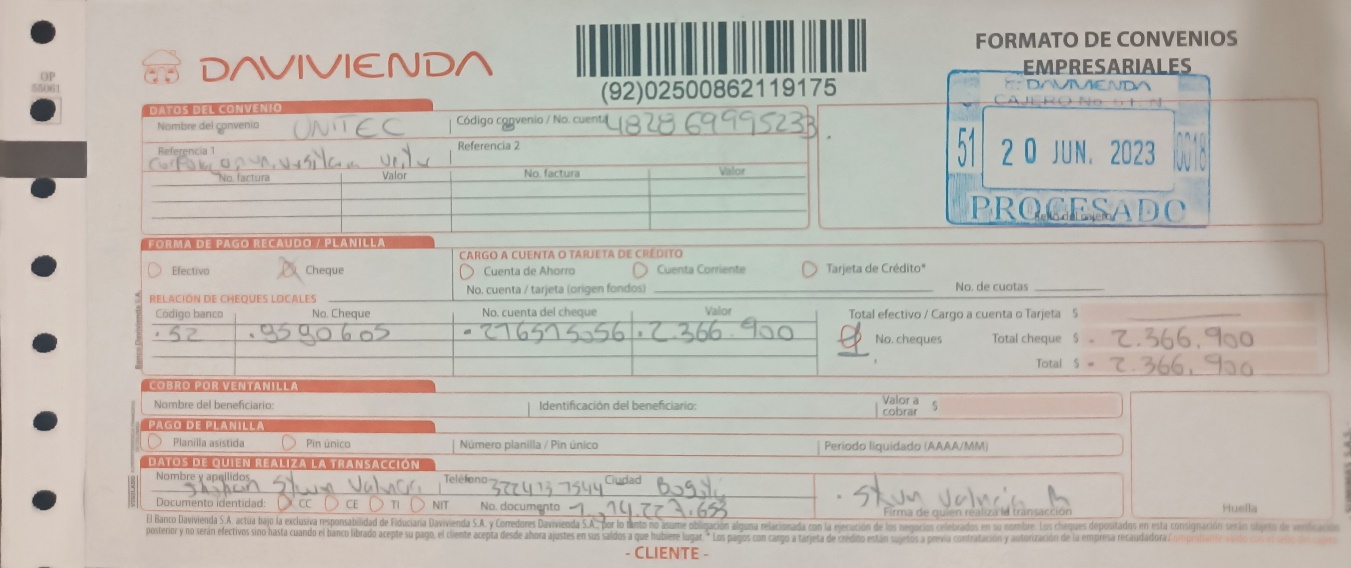 OP
55061
DAVIVIENDA
(92)02500862119175
FORMATO DE CONVENIOS
EMPRESARIALES
DAVIVIENDA
CAJERO No.
51 20 JUN. 2023 0018
PROCESADO
DATOS DEL CONVENIO
Nombre del convenio UNITEC Código convenio / No. cuenta 482869995233
Referencia 1 Referencia 2
No. factura Valor No. factura Valor
FORMA DE PAGO RECAUDO / PLANILLA
Efectivo Cheque
CARGO A CUENTA O TARJETA DE CRÉDITO
Cuenta de Ahorro Cuenta Corriente Tarjeta de Crédito*
No. cuenta / tarjeta (origen fondos) No. de cuotas
RELACIÓN DE CHEQUES LOCALES
Código banco No. Cheque No. cuenta del cheque Valor
.52 .9590605 2.366.900
Total efectivo / Cargo a cuenta o Tarjeta $
No. cheques Total cheque $ 2.366.900
Total $ 2.366.900
COBRO POR VENTANILLA
Nombre del beneficiario: Identificación del beneficiario: Valor a cobrar $
PAGO DE PLANILLA
Planilla asistida Pin único Número planilla / Pin único Periodo liquidado (AAAA/MM)
DATOS DE QUIEN REALIZA LA TRANSACCIÓN
Nombre y apellidos Teléfono Ciudad Bogotá
Documento identidad: CC CE TI NIT No. documento
Firma de quien realiza la transacción
Huella
El Banco Davivienda S.A. actúa bajo la exclusiva responsabilidad de Fiduciaria Davivienda S.A. y Corredores Davivienda S.A., por lo tanto no asume obligación alguna relacionada con la ejecución de los negocios celebrados en su nombre. Los cheques depositados en esta consignación serán objeto de verificación
posterior y no serán efectivos sino hasta cuando el banco librado acepte su pago, el cliente acepta desde ahora ajustes en sus saldos a que hubiere lugar. * Los pagos con cargo a tarjeta de crédito están sujetos a previa contratación y autorización de la empresa recaudadora
- CLIENTE -